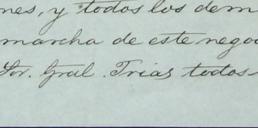 nes, y todos los dem
marcha de este nego
Sor. Gral. Trias todos